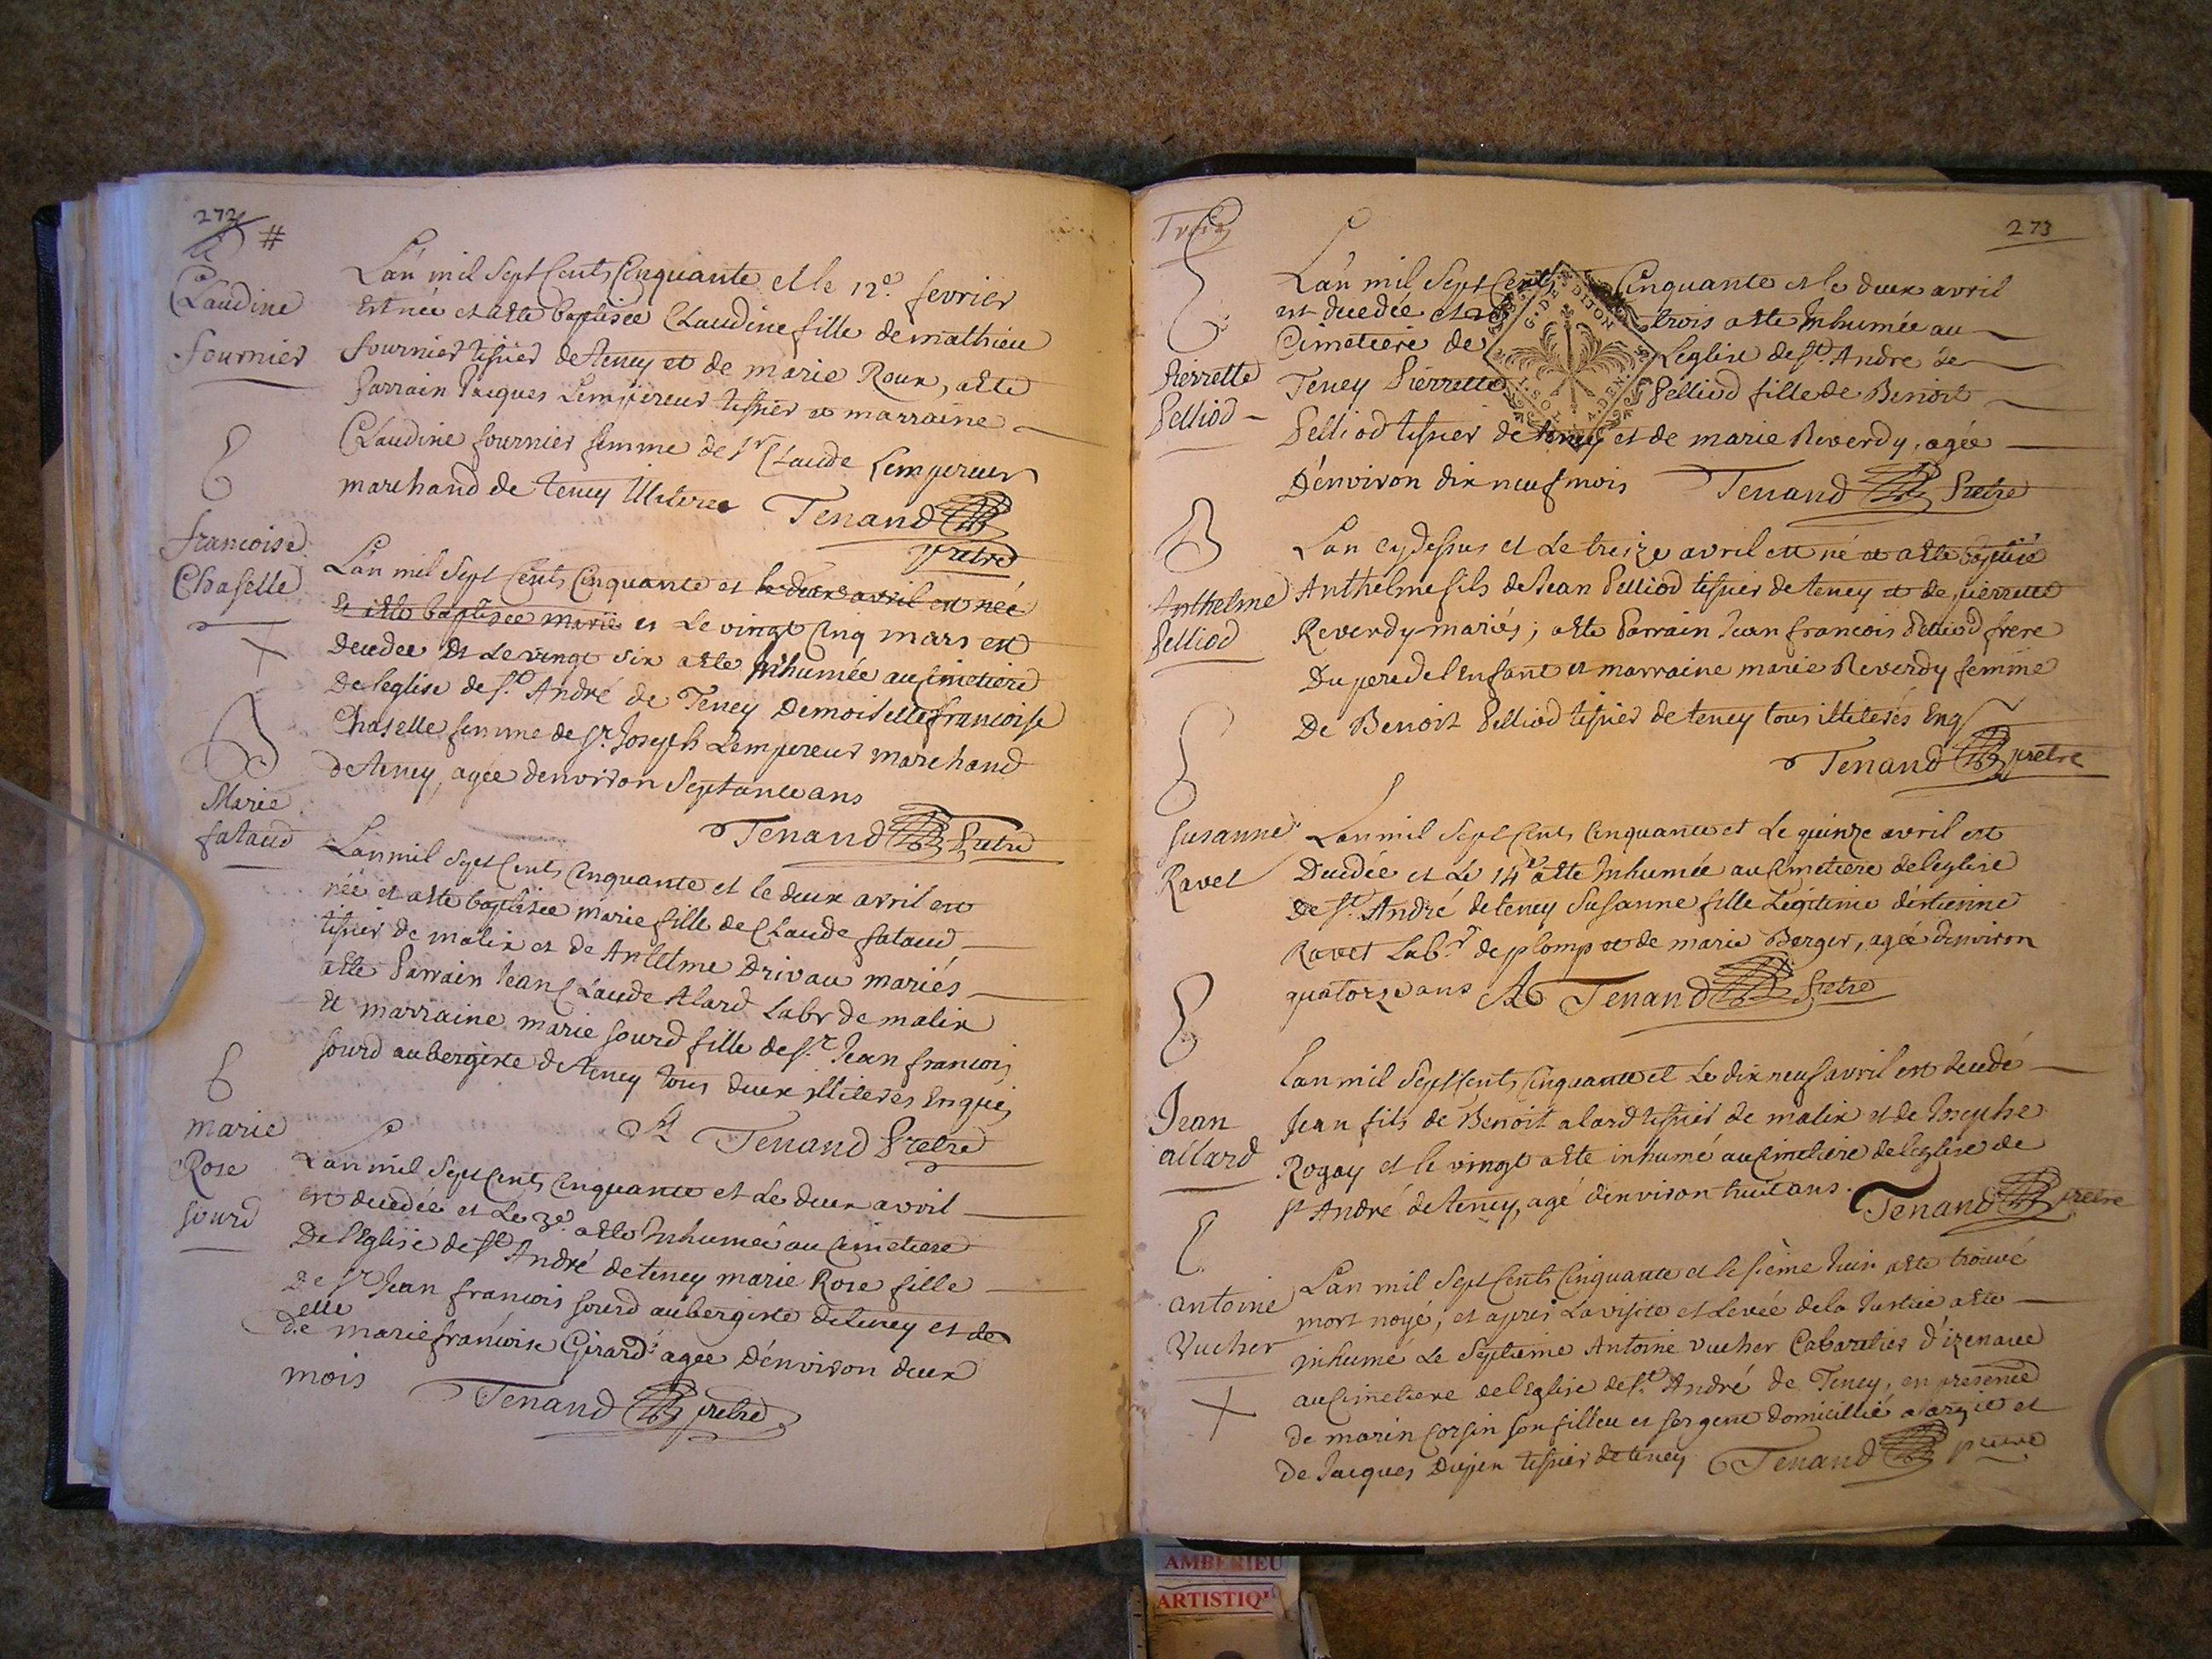 272
#
Claudine
fournier
L'an mil Sept Cents Cinquante et le 12e. fevrier
est née et atte baptisée Claudine fille de mathieu
fournier tissier de teney et de marie Roux, atte
parrain Jacques Lempereur tissier et marraine
Claudine fournier femme de sr Claude Lempereur
marchand de teney Illiterés Tenand
pretre
francoise
Chaselle
L'an mil Sept Cents Cinquante et le deux avril est née
et atte baptisée marie et Le vingt Cinq mars est
decedee et Le vingt six atte Inhumée au Cimetiere
De leglise de st. André de Teney Demoiselle francoise
Chaselle femme de sr. Joseph Lempereur marchand
de teney, agée denviron Septante ans
Tenand Pretre
Marie
fataud
Lan mil Sept Cents Cinquante et le deux avril est
née et atte baptisée marie fille de Claude fataud
tissier de malix et de Antelme Drivau mariés
atte Parrain Jean Claude Alard Labr de malix
et marraine marie sourd fille de sr. Jean francois
sourd aubergiste de teney tous deux illiterés Enquis
Tenand Pretre
marie
Rose
sourd
Lan mil Sept Cents Cinquante et Le deux avril
est decedée et Le 3e. atte Inhumée au Cimetiere
De l'Eglise de st André de teney marie Rose fille
de sr Jean francois sourd aubergiste de teney et de
delle marie francoise Girard agée D'environ deux
mois Tenand pretre
273
Trois
Pierrette
Pelliod
L'an mil Sept Cents Cinquante et le deux avril
est decedée et le trois atte Inhumée au
Cimetiere de Leglise de st. André de
Teney Pierrette Pelliod fille de Benoit
Pelliod tissier de teney et de marie Reverdy, agée
D'environ dix neuf mois Tenand Pretre
G. DE DIJON
Anthelme
Pelliod
L'an cy dessus et Le treize avril est né et atte baptisé
Anthelme fils de Jean Pelliod tissier de teney et de pierrette
Reverdy mariés; atte Parrain Jean francois Pelliod frere
Du pere de l'Enfant et marraine marie Reverdy femme
De Benoit Pelliod tissier de teney tous illiterés Enq
Tenand pretre
Susanne
Ravet
Lan mil Sept Cents Cinquante et Le quinze avril est
Decedée et Le 14e atte Inhumée au Cimetiere de leglise
De st. André de teney Susanne fille Légitime d'étienne
Ravet Labr. de plomp et de marie Berger, agée denviron
quatorze ans Tenand Pretre
Jean
allard
Lan mil Sept Cents Cinquante et Le dix neuf avril est decedé
Jean fils de Benoit alard tissier de malix et de Josephe
Rogay et le vingt atte inhumé au Cimetiere de leglise de
st André de teney, agé d'environ huit ans. Tenand pretre
antoine
Vucher
L'an mil Sept Cents Cinquante et le sixième Juin atte trouvé
mort noyé, et apres la visite et Levée de la Justice atte
inhumé Le Septieme Antoine vucher Cabaretier d'izenave
au Cimetiere de l'Eglise de st. André de Teney, en presence
de marin Corsin son filleu et sergent domicillié a argie et
de Jacques Dujen tissier de teney Tenand pretre
AMBERIEU
ARTISTIQ